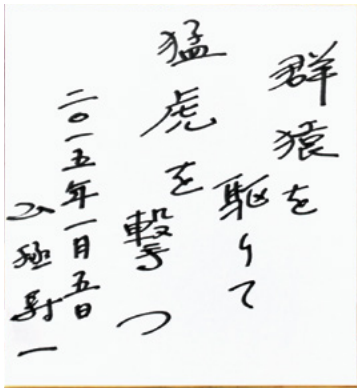 群猿を
駆りて
猛虎を
撃つ
二〇一五年一月五日
山極寿一